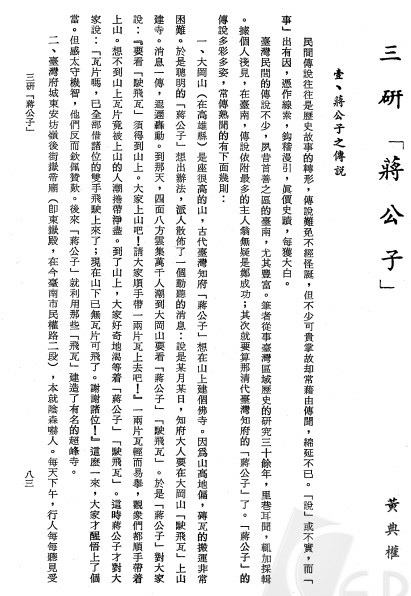 三研「蔣公子」
黃典權
壹、蔣公子之傳說
民間傳說往往是歷史故事的轉形，傳說難免不經怪誕，但不少可貴掌故却常藉由傳聞，綿延不已。「說」或不實，而「
事」出有因，憑作線索，鈎稽漫引，眞價史蹟，每獲大白。
臺灣民間的傳說不少，夙昔首善之區的臺南，尤其豐富。筆者從事臺灣區域歷史的研究三十餘年，里巷耳聞，輒加採輯
。據個人淺見，在臺南，傳說依附最多的主人翁無疑是鄭成功；其次就要算那清代臺灣知府的「蔣公子」了。「蔣公子」的
傳說多彩多姿，常傳熱聞的有下面幾則：
一、大岡山（在高雄縣）是座很高的山，古代臺灣知府「蔣公子」想在山上建個佛寺。因爲山高地偏，磚瓦的搬運非常
困難。於是聰明的「蔣公子」想出辦法，派人散佈了一個動聽的消息：說是某月某日，知府大人要在大岡山「駛飛瓦」上山
建寺。消息一傳，遐邇轟動。到那天，四面八方雲集萬千人潮到大岡山要看「蔣公子」「駛飛瓦」。於是「蔣公子」對大家
說：『要看「駛飛瓦」須得到山上。大家上山吧！請大家順手帶一兩片瓦上去吧！』一兩片瓦輕而易擧，觀衆們都順手帶着
上山。想不到山上瓦片竟被上山的人潮捲帶淨盡。到了山上，大家好奇地渴等着「蔣公子」「駛飛瓦」。這時蔣公子才對大
家說：『瓦片嗎，已全部借諸位的雙手飛駛上來了；現在山下已無瓦片可飛了。謝謝諸位！』這麼一來，大家才醒悟上了個
當。但感太守機智，他們反而欽佩贊歎。後來「蔣公子」就利用那些「飛瓦」建造了有名的超峰寺。
二、臺灣府城東安坊嶺後街嶽帝廟（卽東嶽殿，在今臺南市民權路二段），本就陰森嚇人。每天下午，行人每每聽見受
三研「蔣公子」
八三